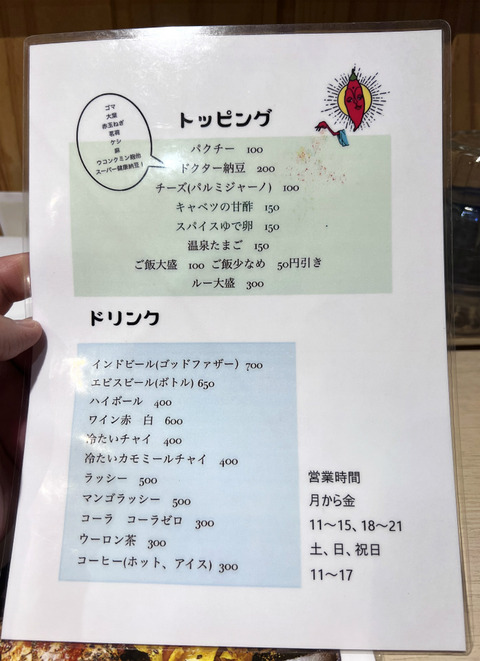 トッピング
ゴマ
大葉
赤玉ねぎ
茗荷
ケシ
麻
ウコンクミン麹他
スーパー健康納豆!
パクチー 100
ドクター納豆 200
チーズ(パルミジャーノ) 100
キャベツの甘酢 150
スパイスゆで卵 150
温泉たまご 150
ご飯大盛 100 ご飯少なめ 50円引き
ルー大盛 300
ドリンク
インドビール(ゴッドファザー) 700
エビスビール(ボトル) 650
ハイボール 400
ワイン赤 白 600
冷たいチャイ 400
冷たいカモミールチャイ 400
ラッシー 500
マンゴラッシー 500
コーラ コーラゼロ 300
ウーロン茶 300
コーヒー(ホット、アイス) 300
営業時間
月から金
11〜15、18〜21
土、日、祝日
11〜17